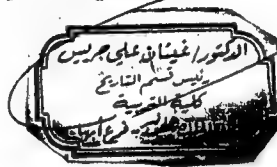 الدكتور/غيثان علي جريس
رئيس قسم التاريخ
كلية التربية
فرع أبها